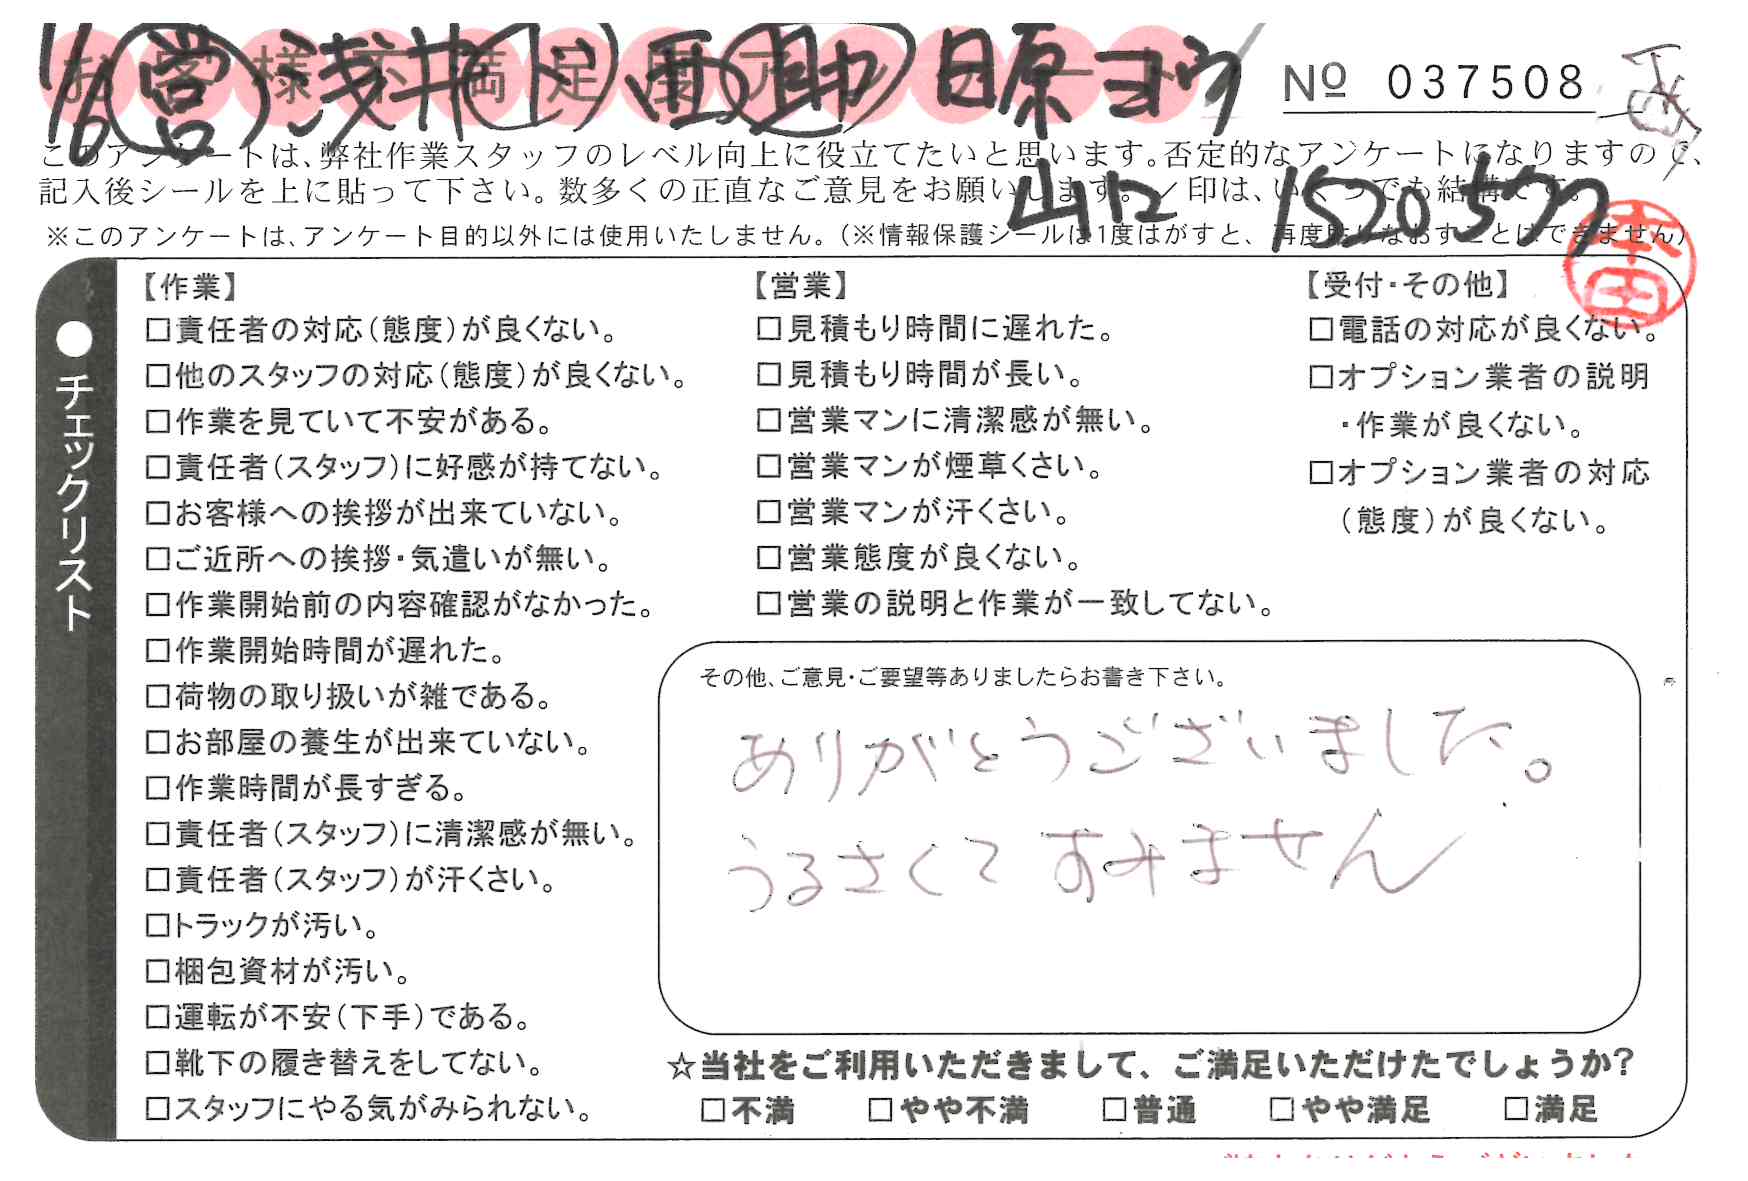 お客様不満足度アンケート
1/6 営 浅井 ド 西 助 日原 ヨウ
№ 037508
このアンケートは、弊社作業スタッフのレベル向上に役立てたいと思います。否定的なアンケートになりますので、
記入後シールを上に貼って下さい。数多くの正直なご意見をお願いします。✓印は、いくつでも結構です。
山口 1520
※このアンケートは、アンケート目的以外には使用いたしません。(※情報保護シールは1度はがすと、再度貼りなおすことはできません)
本田
●チェックリスト
【作業】
□責任者の対応(態度)が良くない。
□他のスタッフの対応(態度)が良くない。
□作業を見ていて不安がある。
□責任者(スタッフ)に好感が持てない。
□お客様への挨拶が出来ていない。
□ご近所への挨拶・気遣いが無い。
□作業開始前の内容確認がなかった。
□作業開始時間が遅れた。
□荷物の取り扱いが雑である。
□お部屋の養生が出来ていない。
□作業時間が長すぎる。
□責任者(スタッフ)に清潔感が無い。
□責任者(スタッフ)が汗くさい。
□トラックが汚い。
□梱包資材が汚い。
□運転が不安(下手)である。
□靴下の履き替えをしてない。
□スタッフにやる気がみられない。
【営業】
□見積もり時間に遅れた。
□見積もり時間が長い。
□営業マンに清潔感が無い。
□営業マンが煙草くさい。
□営業マンが汗くさい。
□営業態度が良くない。
□営業の説明と作業が一致してない。
【受付・その他】
□電話の対応が良くない。
□オプション業者の説明
・作業が良くない。
□オプション業者の対応
(態度)が良くない。
その他、ご意見・ご要望等ありましたらお書き下さい。
ありがとうございました。
うるさくてすみません
☆当社をご利用いただきまして、ご満足いただけたでしょうか?
□不満 □やや不満 □普通 □やや満足 □満足